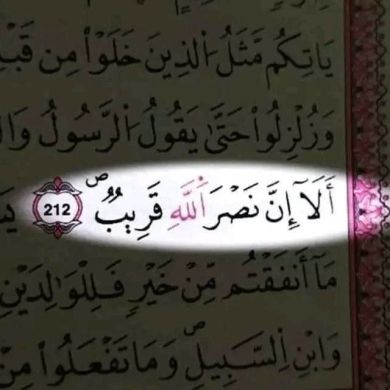 يَاتِكُم مَّثَلُ اُ۬لذِينَ خَلَوْاْ مِن
وَزُلْزِلُواْ حَتَّىٰ يَقُولُ اُ۬لرَّسُولُ
أَلَآ إِنَّ نَصْرَ اَ۬للَّهِ قَرِيبٌ ۖ 212
مَآ أَنفَقْتُم مِّنْ خَيْرٍ فَلِلْوَٰلِدَيْنِ
وَابْنِ اِ۬لسَّبِيلِ ۖ وَمَا تَفْعَلُواْ مِنْ